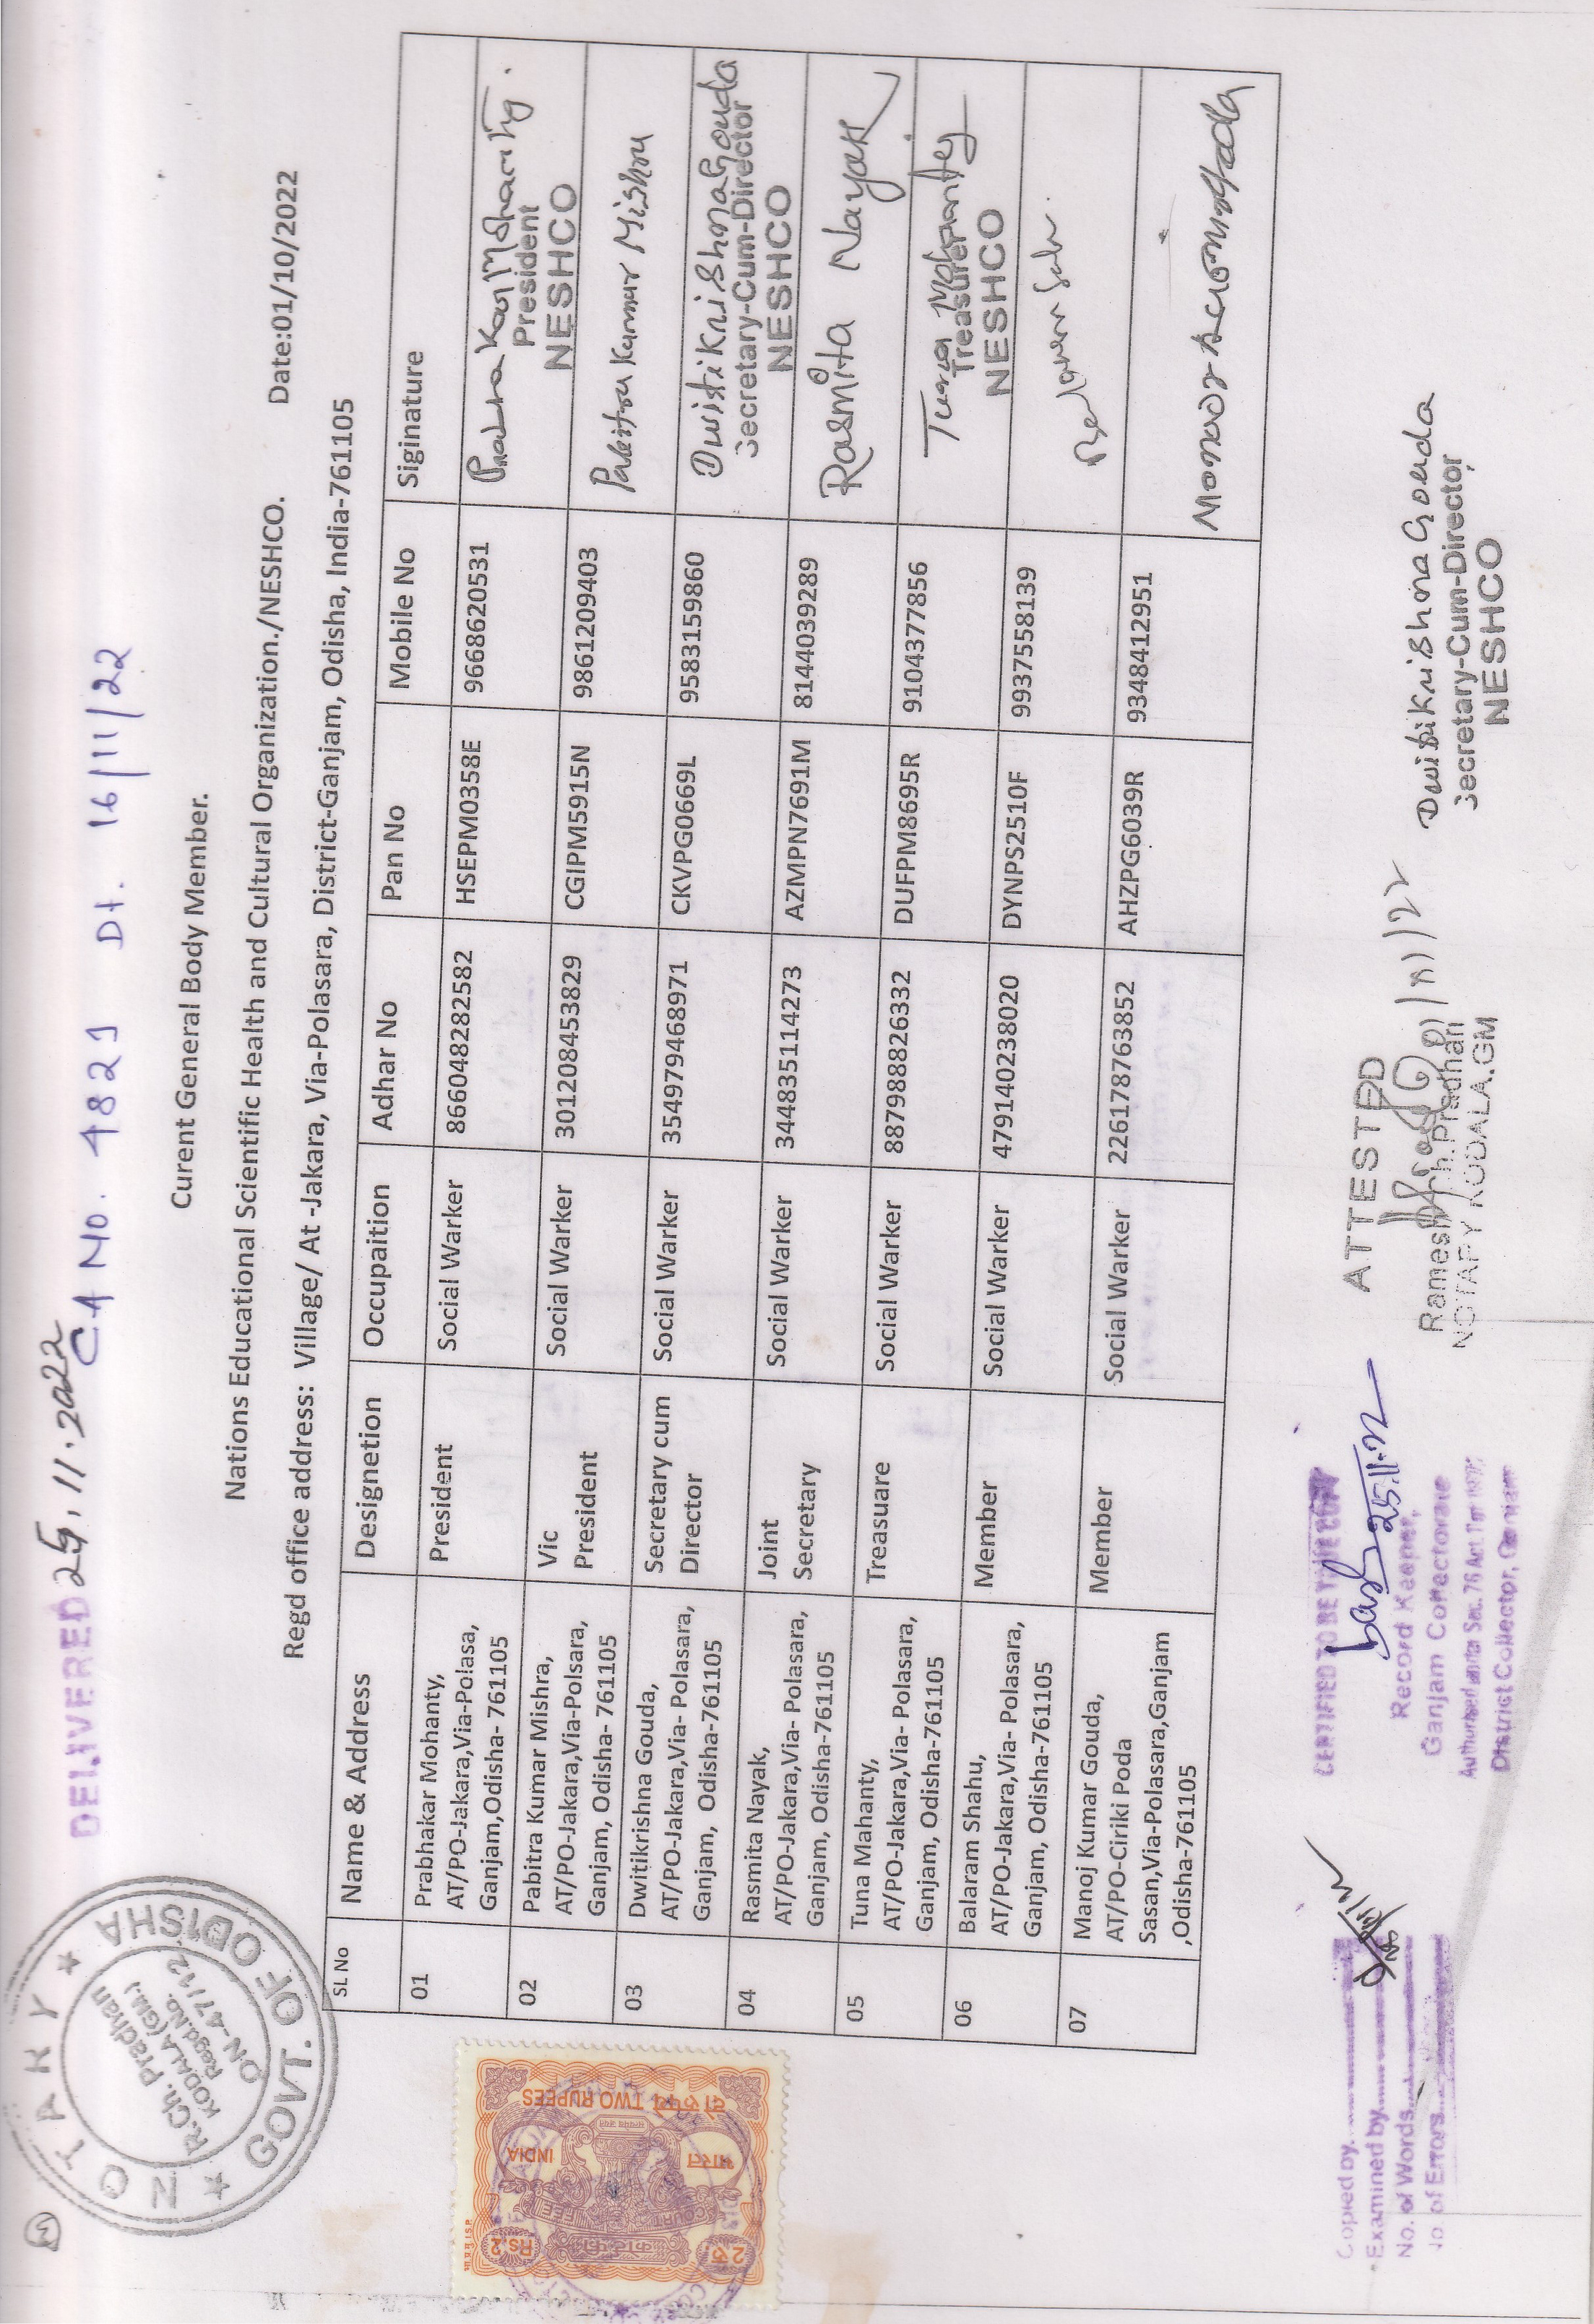 DELIVERED 25.11.2022
CA No. 4821 Dt. 16/11/22
NOTARY
GOVT. OF ODISHA
R.Ch. Pradhan
KODALA (GM.)
Regd.No.
ON-47/12
Curent General Body Member.
Nations Educational Scientific Health and Cultural Organization./NESHCO. Date:01/10/2022
Regd office address: Village/ At -Jakara, Via-Polasara, District-Ganjam, Odisha, India-761105
SL No Name & Address Designetion Occupaition Adhar No Pan No Mobile No Siginature
01 Prabhakar Mohanty, President Social Warker 866048282582 HSEPM0358E 9668620531
AT/PO-Jakara,Via-Polasa, President
Ganjam,Odisha- 761105 NESHCO
02 Pabitra Kumar Mishra, Vic Social Warker 301208453829 CGIPM5915N 9861209403 Pabitra Kumar Mishra
AT/PO-Jakara,Via-Polsara, President
Ganjam, Odisha- 761105
03 Dwitikrishna Gouda, Secretary cum Social Warker 354979468971 CKVPG0669L 9583159860 Dwitikrishna Gouda
AT/PO-Jakara,Via- Polasara, Director Secretary-Cum-Director
Ganjam, Odisha-761105 NESHCO
04 Rasmita Nayak, Joint Social Warker 344835114273 AZMPN7691M 8144039289 Rasmita Nayak
AT/PO-Jakara,Via- Polasara, Secretary
Ganjam, Odisha-761105
05 Tuna Mahanty, Treasuare Social Warker 887988826332 DUFPM8695R 9104377856 Tuna Mohanty
AT/PO-Jakara,Via- Polasara, Treasurer
Ganjam, Odisha-761105 NESHCO
06 Balaram Shahu, Member Social Warker 479140238020 DYNPS2510F 9937558139
AT/PO-Jakara,Via- Polasara,
Ganjam, Odisha-761105
07 Manoj Kumar Gouda, Member Social Warker 226178763852 AHZPG6039R 9348412951
AT/PO-Ciriki Poda
Sasan,Via-Polasara,Ganjam
,Odisha-761105
Rs.2
INDIA
भारत
COURT FEE
कोर्ट फीस
दो रुपये TWO RUPEES
Copied by
Examined by
No. of Words
No. of Errors
CERTIFIED TO BE TRUE COPY
25.11.22
Record Keeper,
Ganjam Collectorate
Authorised under Sec. 76 Act 1 of 1872
District Collector, Ganjam
ATTESTED
Ramesh Ch. Pradhan
NOTARY KODALA.GM
Dwitikrishna Gouda
Secretary-Cum-Director
NESHCO